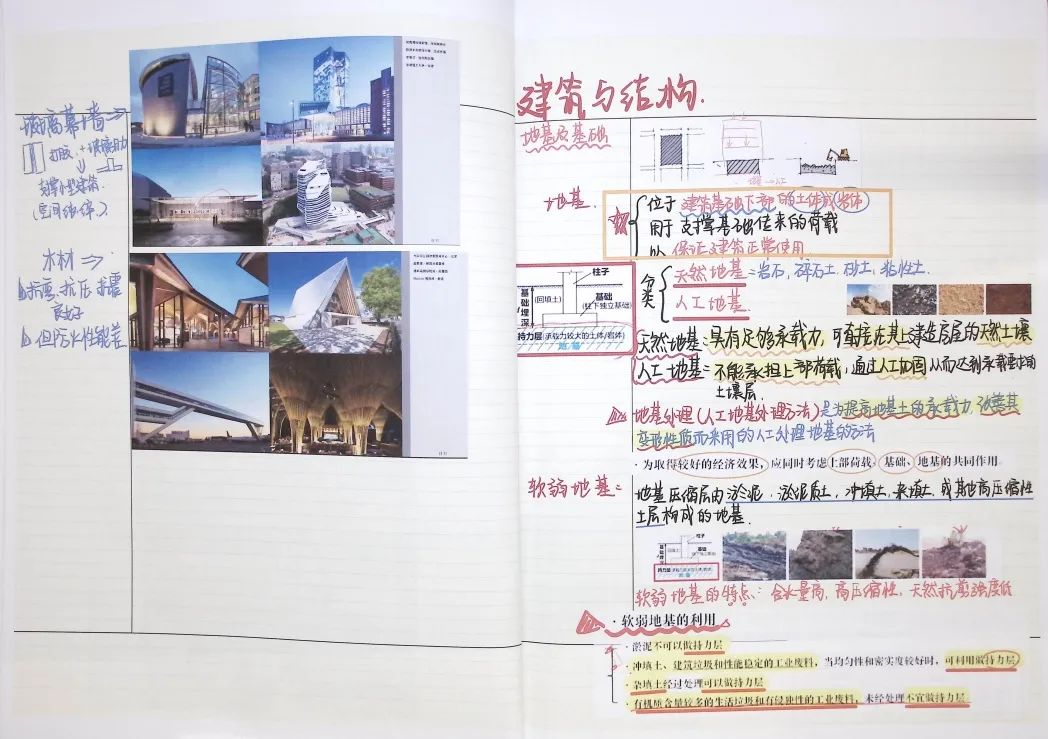 玻璃幕墙⇒
打胶.+玻璃肋
支撑小型建筑.
(空间组

木材⇒
抗弯.抗压.抗震
良好
但防火性能差
建筑与结构.
地基及基础
地基.
位于建筑基础下部的土体或岩体
用于支撑基础传来的荷载
以保证建筑正常使用
柱子
基础埋深
(回填土)
基础
(柱下独立基础)
持力层(承载力较大的土体/岩体)
地/基
分类
天然地基=岩石,碎石土.砂土,粘性土.
人工地基.
天然地基=具有足够承载力,可直接在其上建造房屋的天然土壤
人工地基=不能承担上部荷载,通过人工加固,从而达到承载要求的
土壤层.
地基处理(人工地基处理方法)是为提高地基土的承载力,改善其
变形性质而采用的人工处理地基的方法
·为取得较好的经济效果,应同时考虑上部荷载、基础、地基的共同作用。
软弱地基=
地基压缩层由淤泥.淤泥质土,冲填土,杂填土,或其他高压缩性
土层构成的地基.
柱子
基础埋深
(回填土)
基础
持力层
地/基
软弱地基的特点:含水量高,高压缩性,天然抗剪强度低
·软弱地基的利用
·淤泥不可以做持力层
·冲填土、建筑垃圾和性能稳定的工业废料,当均匀性和密实度较好时,可利用做持力层。
·杂填土经过处理可以做持力层
·有机质含量较多的生活垃圾和有侵蚀性的工业废料,未经处理不宜做持力层